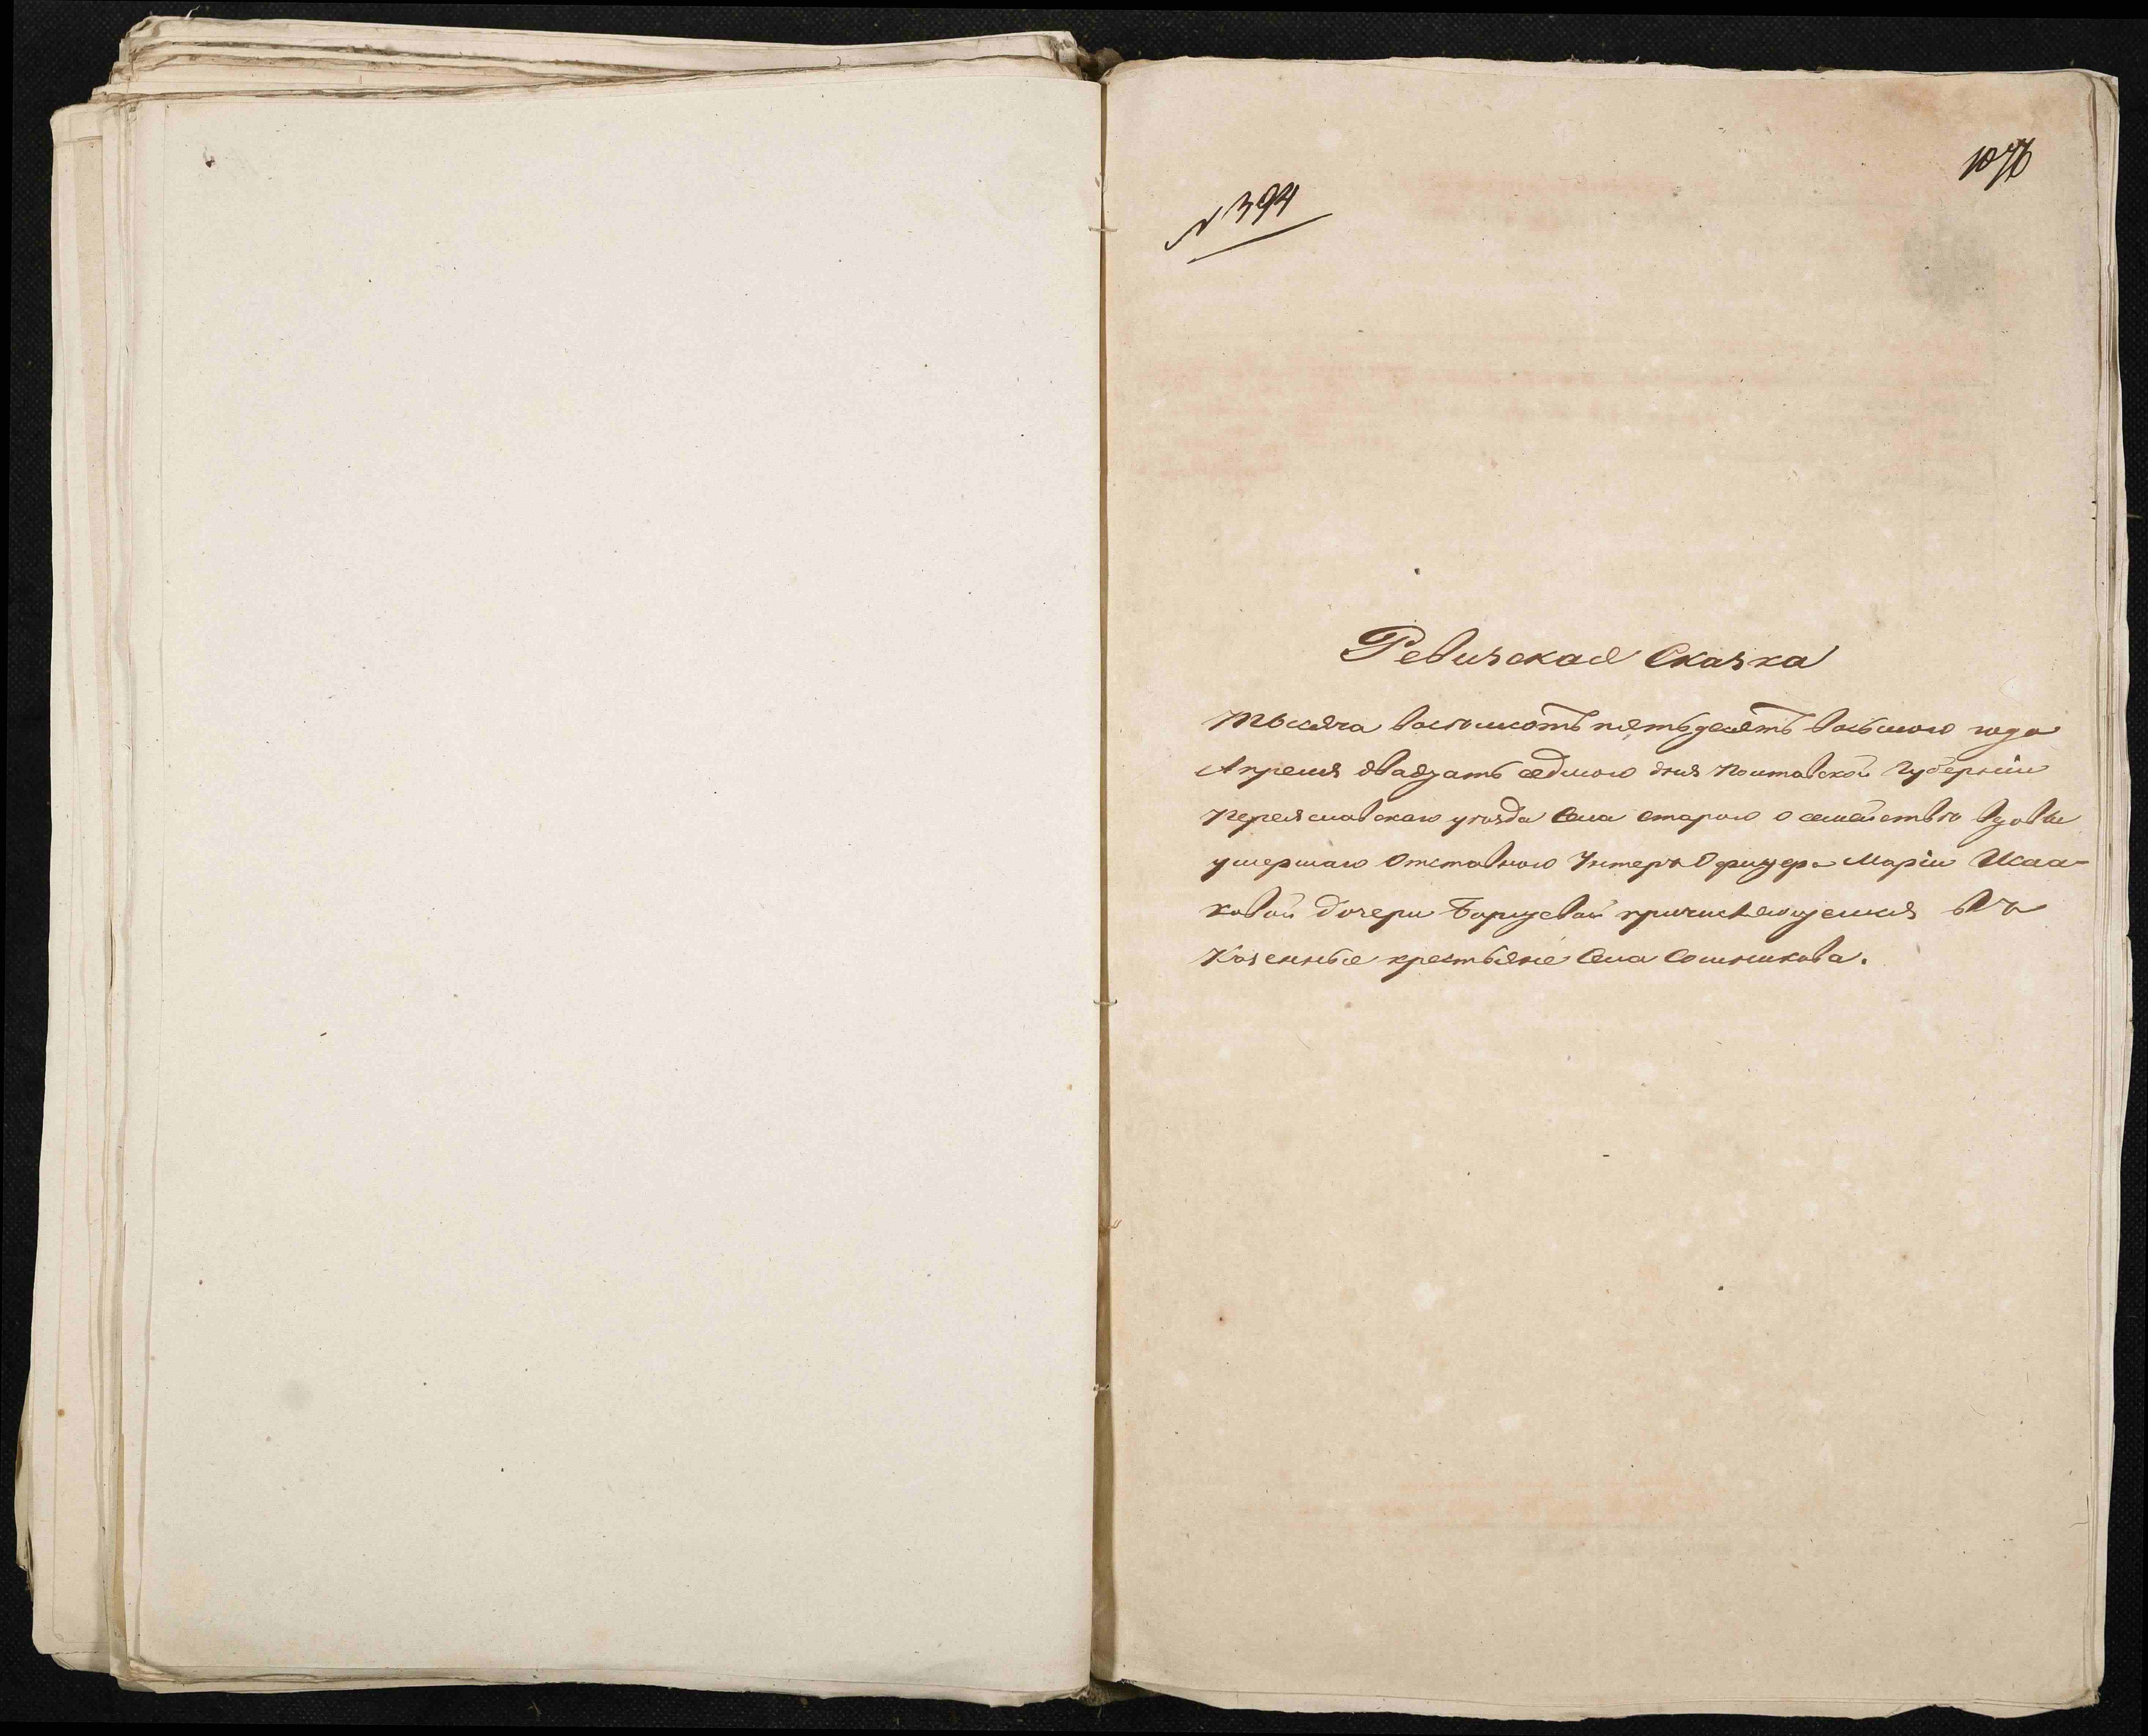 № 394
Ревизская Сказка
тысяча восѣмсотъ пятьдесятъ восьмого года
Апреля двадцать седмого дня Полтавской Губерніи
Переяславскаго уѣзда Села Старого о семействѣ вдовы
умершаго Отставного Унтеръ Офицера Маріи Исаа-
ковой дочери Борщевой причисляющемся въ
Казенные крестьяне Села Сошникова.